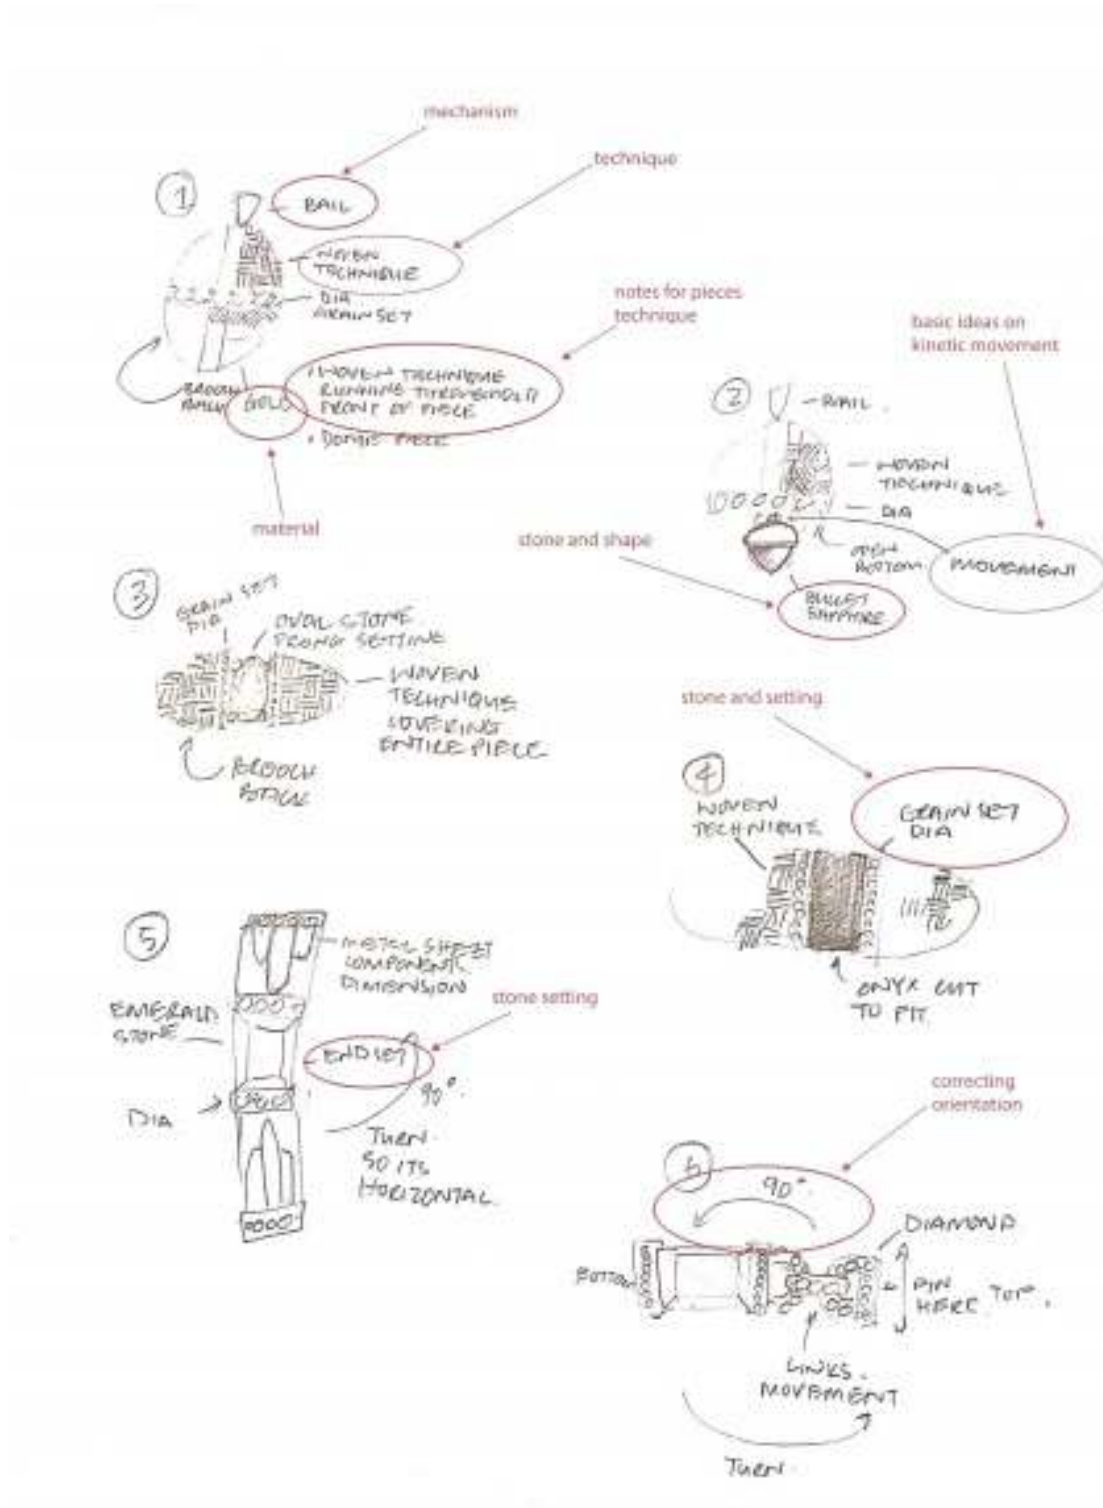 mechanism
technique
1
BAIL
WOVEN
TECHNIQUE
DIA
GRAIN SET
notes for pieces
technique
basic ideas on
kinetic movement
• WOVEN TECHNIQUE
RUNNING THROUGHOUT
FRONT OF PIECE
• DOMED PIECE
BROOCH
BACK
GOLD
material
2
BAIL
WOVEN
TECHNIQUE
DIA
OPEN
BOTTOM
MOVEMENT
stone and shape
BULLET
SAPPHIRE
3
GRAIN SET
DIA
OVAL STONE
PRONG SETTING
WOVEN
TECHNIQUE
COVERING
ENTIRE PIECE
BROOCH
BACK
stone and setting
4
WOVEN
TECHNIQUE
GRAIN SET
DIA
ONYX CUT
TO FIT.
5
METAL SHEET
COMPONENTS
DIMENSION
EMERALD
STONE
stone setting
END SET
90°
DIA
TURN
SO ITS
HORIZONTAL
correcting
orientation
6
90°
DIAMOND
BOTTOM
PIN
HERE TOP.
LINKS.
MOVEMENT
TURN